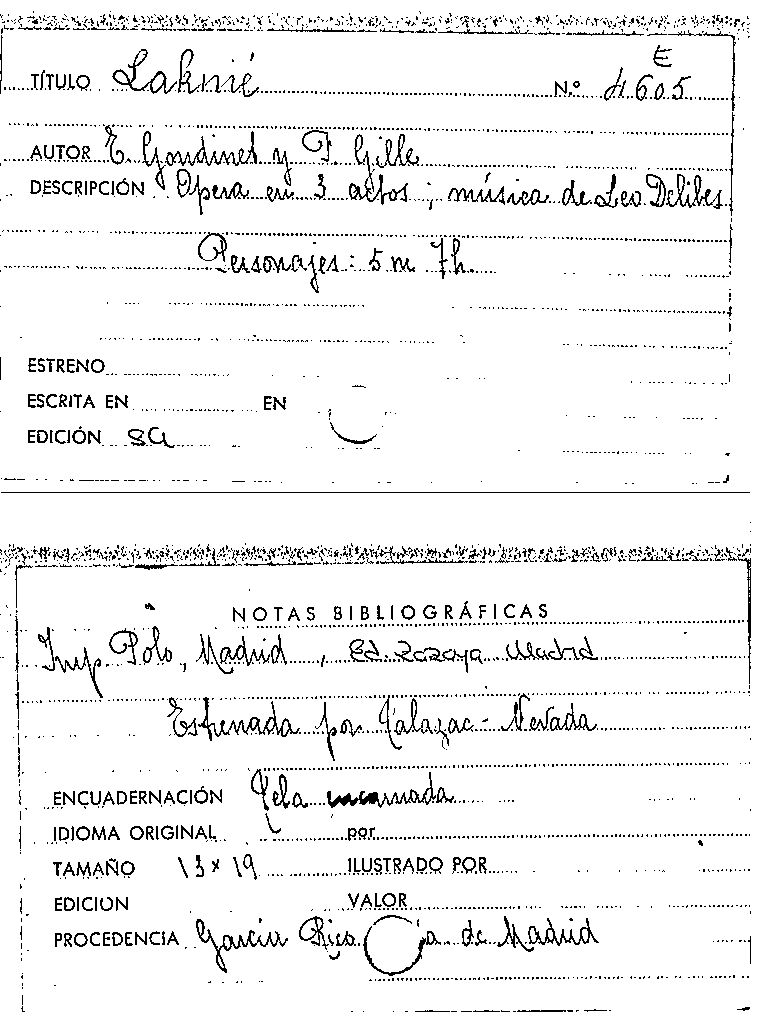 E
TÍTULO Lakmé N.º 4605
AUTOR E. Gondinet y P. Gille
DESCRIPCIÓN Opera en 3 actos; música de Leo Delibes
Personajes: 5 m 7h.
ESTRENO
ESCRITA EN EN
EDICIÓN sa
NOTAS BIBLIOGRÁFICAS
Imp. Polo, Madrid, Ed. Zozaya Madrid
Estrenada por Talazac - Nevada
ENCUADERNACIÓN Tela encarnada
IDIOMA ORIGINAL por
TAMAÑO 13 x 19 ILUSTRADO POR
EDICION VALOR
PROCEDENCIA García Rico de Madrid